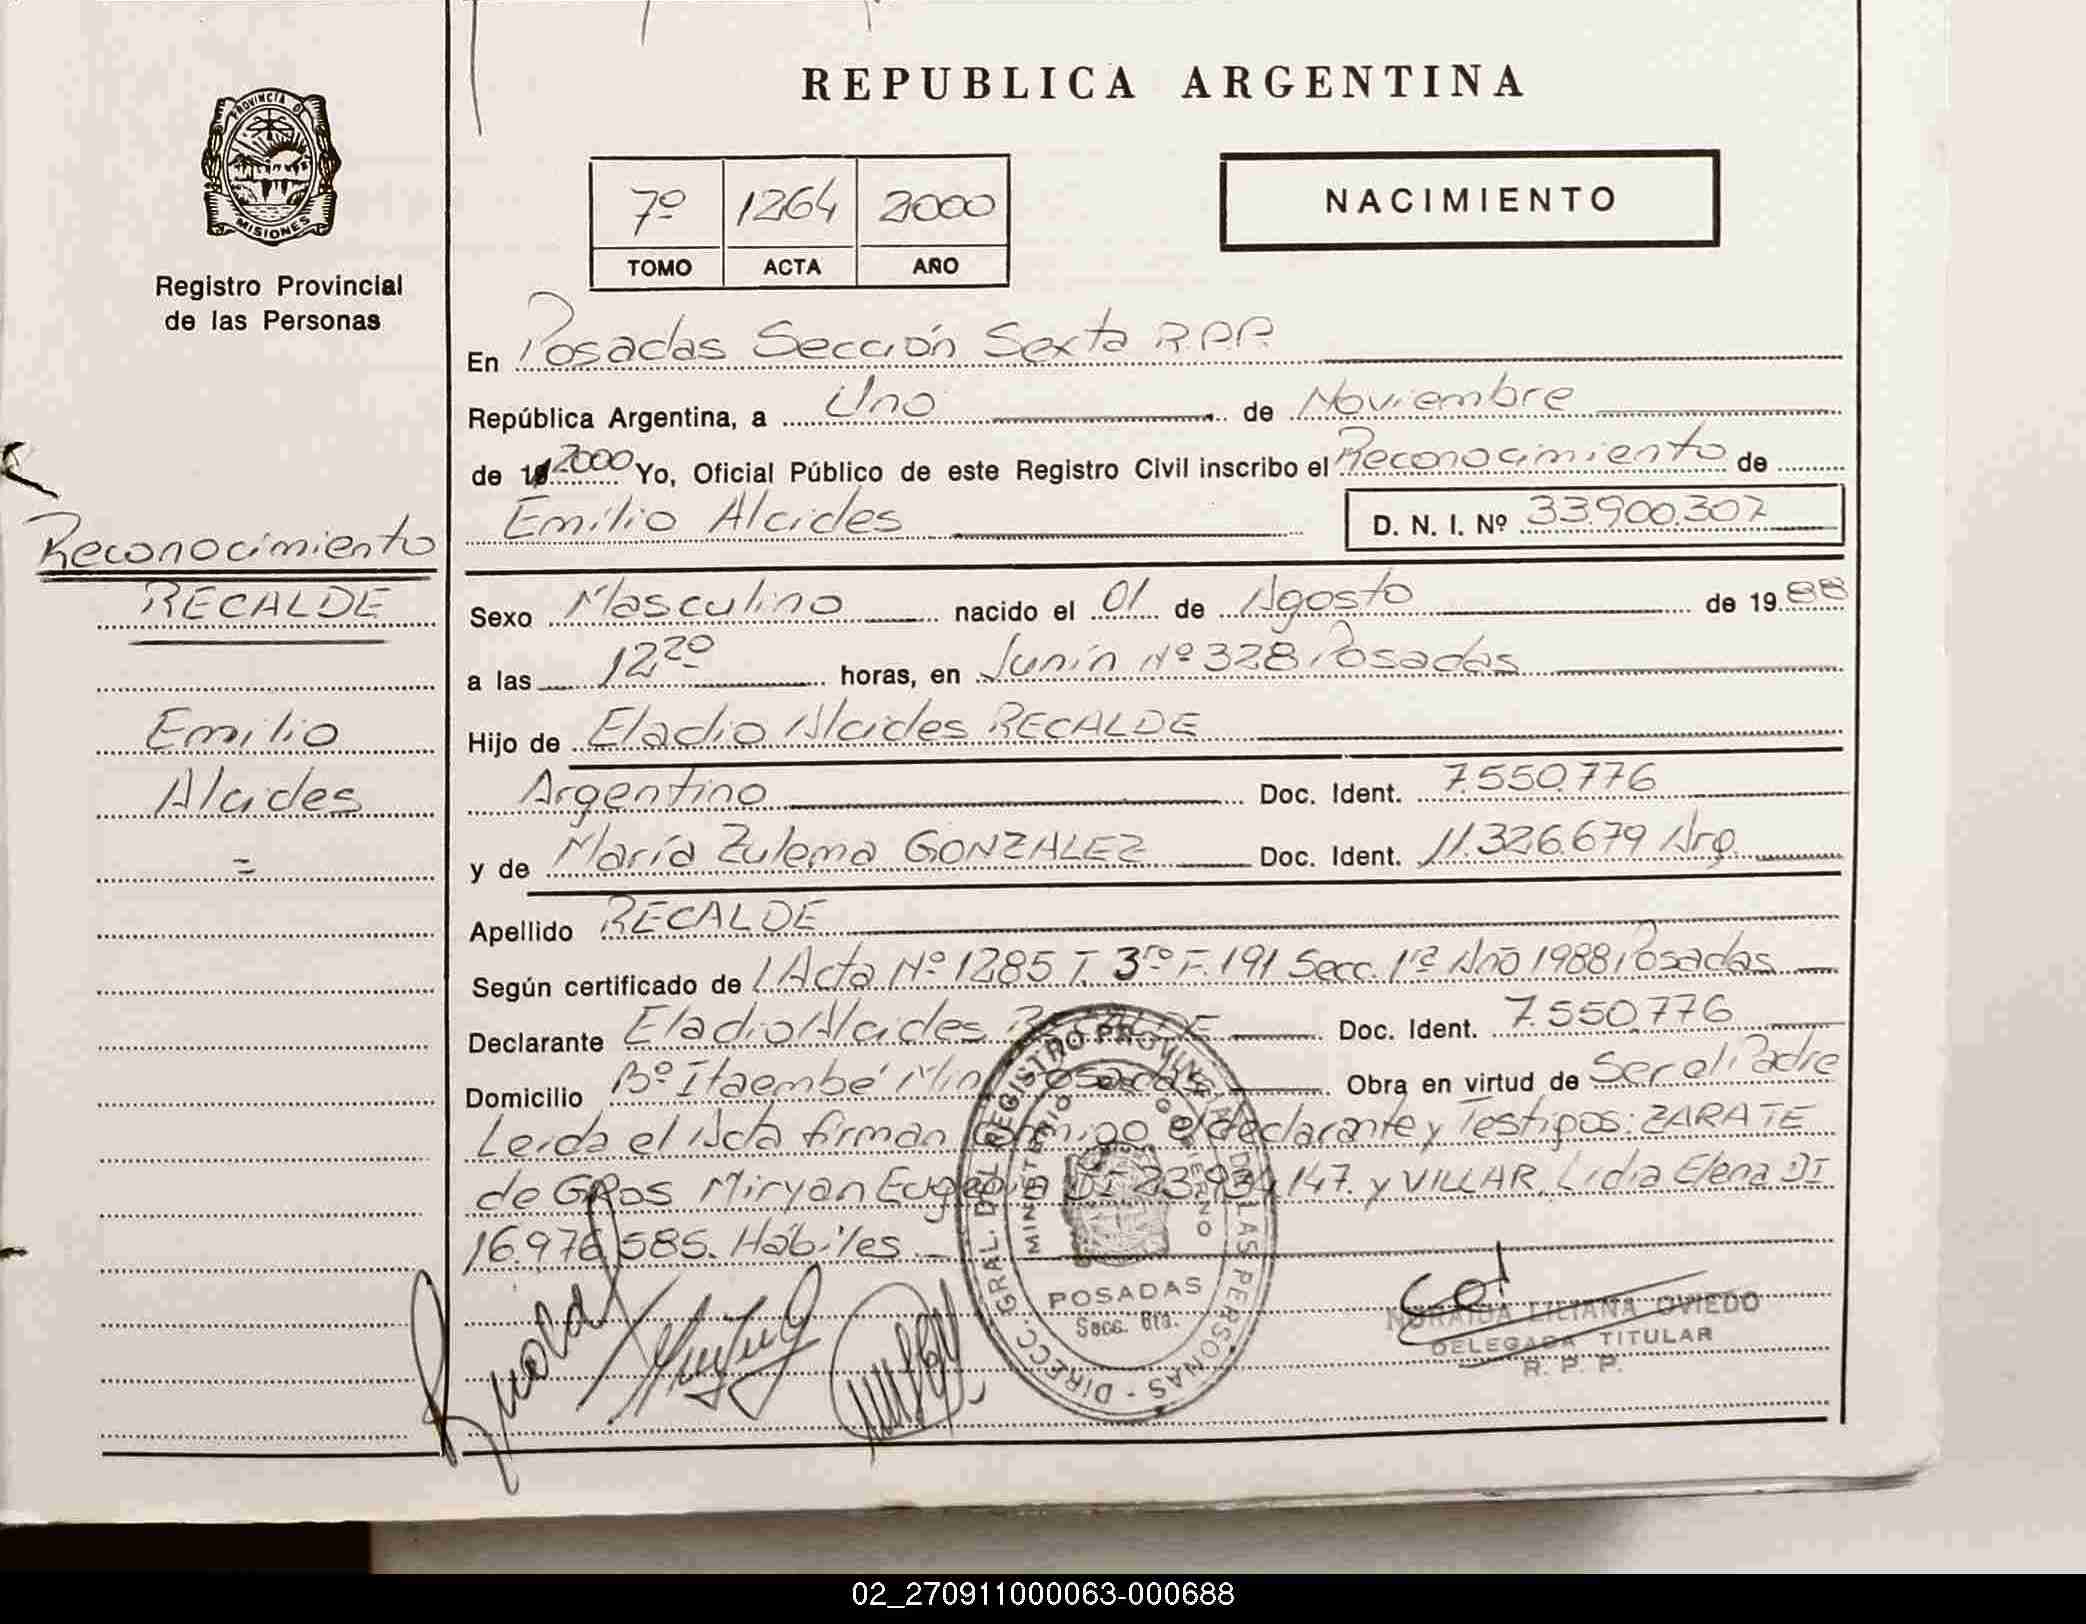 REPUBLICA ARGENTINA
PROVINCIA DE
MISIONES
Registro Provincial
de las Personas
7º 1264 2000
TOMO ACTA AÑO
NACIMIENTO
En Posadas Sección Sexta R.P.P.
República Argentina, a Uno de Noviembre
de 2000 Yo, Oficial Público de este Registro Civil inscribo el Reconocimiento de
Emilio Alcides D. N. I. Nº 33.900.307
Reconocimiento
RECALDE
Emilio
Alcides
=
Sexo Masculino nacido el 01 de Agosto de 1988
a las 12 20 horas, en Junín Nº 328 Posadas
Hijo de Eladio Alcides RECALDE
Argentino Doc. Ident. 7.550.776
y de María Zulema GONZALEZ Doc. Ident. 11.326.679 Arg.
Apellido RECALDE
Según certificado de Acta Nº 1285 T. 3ro F. 191 Secc. 1ra Año 1988 Posadas
Declarante Eladio Alcides RECALDE Doc. Ident. 7.550.776
Domicilio Bº Itaembé Miní Posadas Obra en virtud de Ser el Padre
Leida el Acta firman conmigo el declarante y Testigos: ZARATE
de GROS Miryan Eugenia DI 23.934.147. y VILLAR, Lidia Elena DI
16.976.585. Hábiles.
DIRECC. GRAL. DEL REGISTRO PROVINCIAL DE LAS PERSONAS
MINISTERIO GOBIERNO
POSADAS
Secc. 6ta.
LILIANA OVIEDO
DELEGADA TITULAR
R. P. P.
02_270911000063-000688